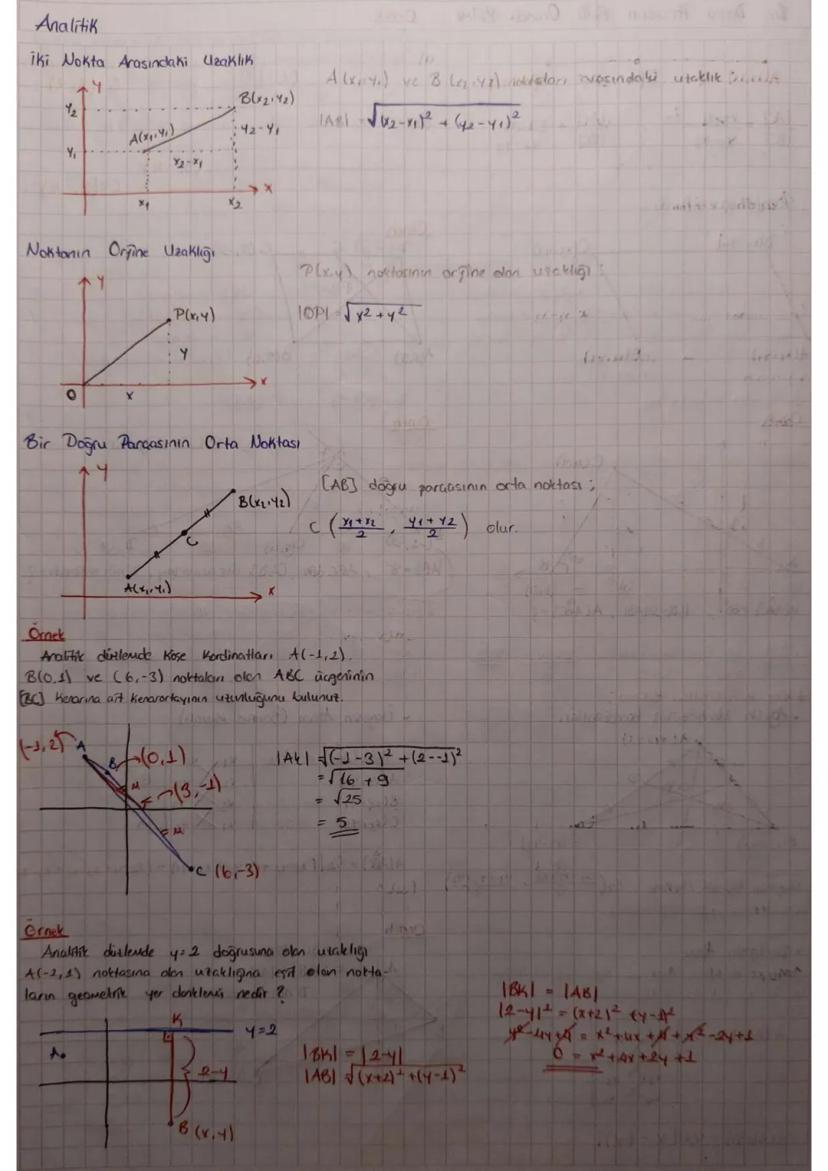 Analitik
İki Nokta Arasındaki Uzaklık
Y
Y₂
B(x₂,Y₂)
A(x₁,Y₁)
Y₂-Y₁
Y₁
x₂-x₁
x₁
x₂
x
A(x₁,Y₁) ve B(x₂,Y₂) noktaları arasındaki uzaklık
|AB| = √(x₂-x₁)² + (y₂-y₁)²
Noktanın Orjine Uzaklığı
Y
P(x,y)
Y
O
x
x
P(x,y) noktasının orjine olan uzaklığı :
|OP| = √x²+y²
Bir Doğru Parçasının Orta Noktası
Y
B(x₂,Y₂)
C
A(x₁,Y₁)
x
[AB] doğru parçasının orta noktası ;
C (x₁+x₂/2 , y₁+y₂/2) olur.
Örnek
Analitik düzlemde Köşe Kordinatları A(-1,2).
B(0,1) ve C(6,-3) noktaları olan ABC üçgeninin
[BC] Kenarına ait Kenarortayının uzunluğunu bulunuz.
(-1,2) A
B (0,1)
(3,-1)
C (6,-3)
|AK| = √(-1-3)² + (2--1)²
= √16 + 9
= √25
= 5
Örnek
Analitik düzlemde y=2 doğrusuna olan uzaklığı
A(-2,1) noktasına olan uzaklığına eşit olan nokta-
ların geometrik yer denklemi nedir ?
K
y=2
A
2-y
B (x,y)
|BK| = |2-y|
|AB| √(x+2)² + (y-1)²
|BK| = |AB|
|2-y|² = (x+2)² + (y-1)²
y²-4y+4 = x²+4x+4+y²-2y+1
0 = x²+4x+2y+1